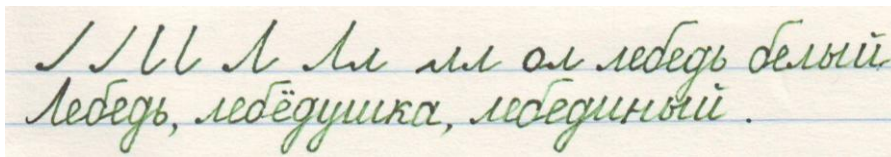 Л Лл лл ол лебедь белый
Лебедь, лебёдушка, лебединый.